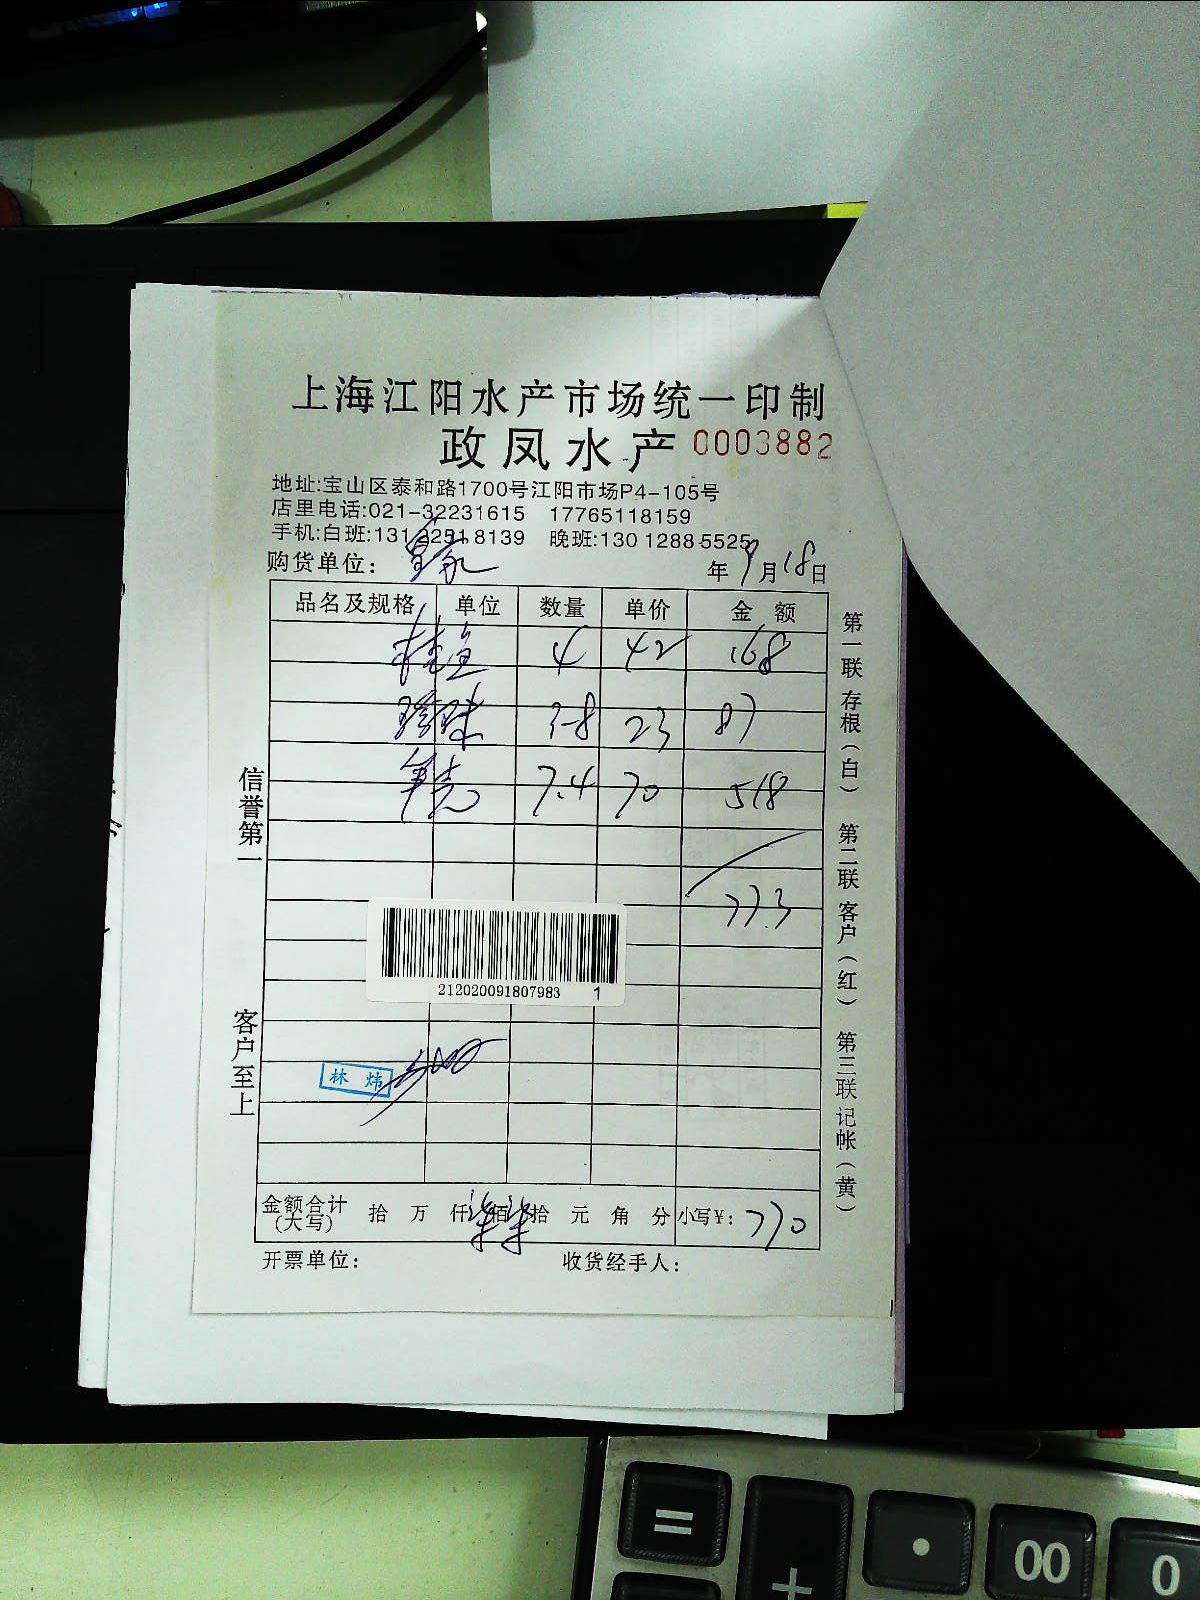 上海江阳水产市场统一印制
政凤水产 0003882
地址:宝山区泰和路1700号江阳市场P4-105号
店里电话:021-32231615 17765118159
手机:白班:131 2251 8139 晚班:130 1288 5525
购货单位: 年9月18日
品名及规格 单位 数量 单价 金额
桂鱼 4 42 168
珍珠 3-8 23 87
笋壳 7.4 70 518
773
212020091807983 1
林炜
金额合计(大写) 拾 万 仟 佰 拾 元 角 分 小写¥: 770
开票单位: 收货经手人:
信誉第一
客户至上
第一联 存根(白) 第二联 客户(红) 第三联 记帐(黄)
=
+
.
00
0